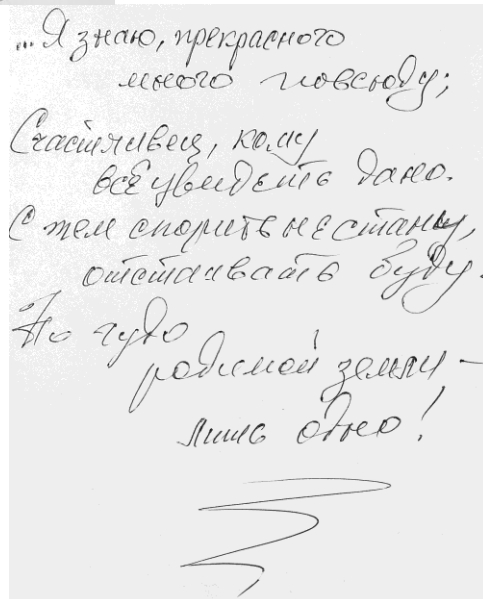 ...Я знаю, прекрасного
много повсюду;
Счастливец, кому
всё увидеть дано.
С тем спорить не стану,
отстаивать буду.
Но чудо
родимой земли —
лишь одно!